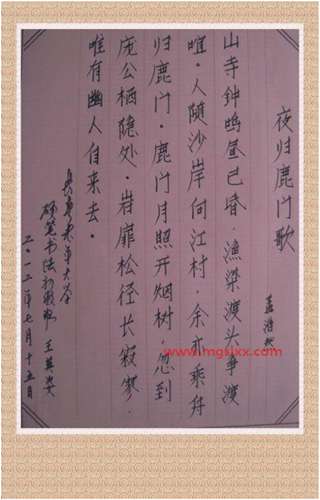 夜归鹿门歌
孟浩然
山寺钟鸣昼已昏·渔梁渡头争渡
喧·人随沙岸向江村·余亦乘舟
归鹿门·鹿门月照开烟树·忽到
庞公栖隐处·岩扉松径长寂寥·
唯有幽人自来去·
老年大学
硬笔书法初级班 王英姿
二〇一二年七月十五日
www.mgsixx.com